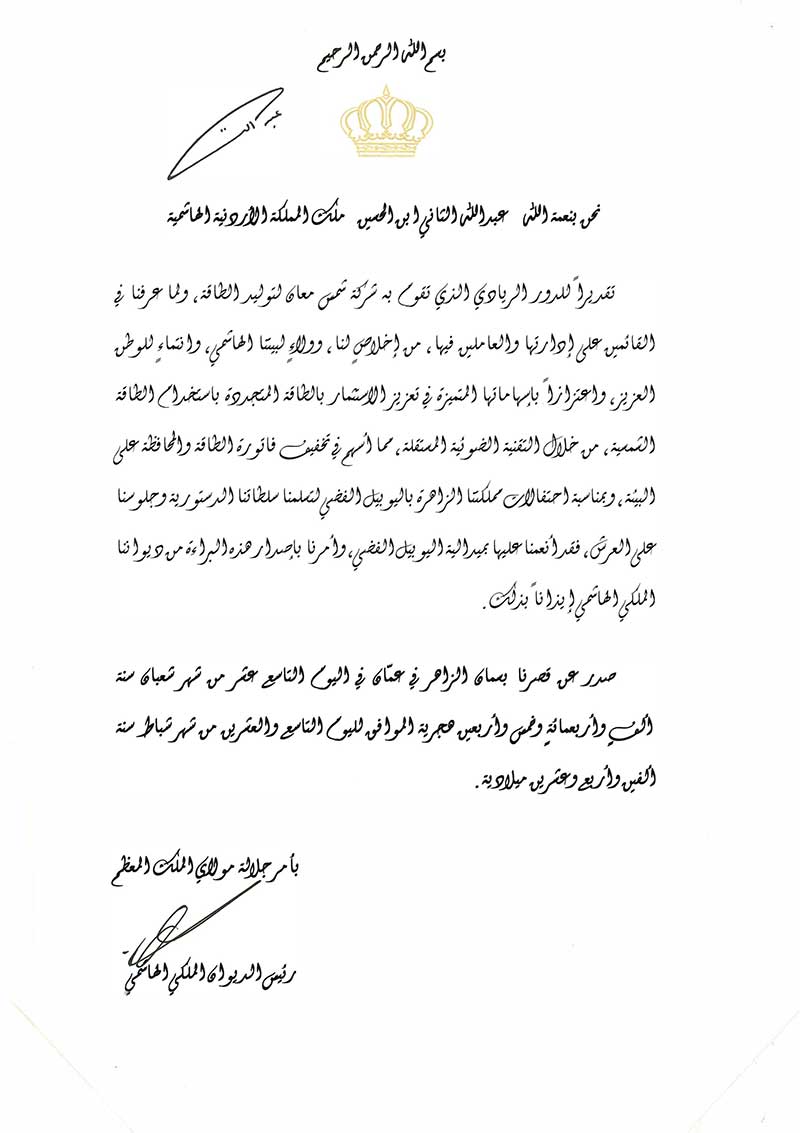 بسم الله الرحمن الرحيم
عبدالله
نحن بنعمة الله عبدالله الثاني ابن الحسين ملك المملكة الأردنية الهاشمية
تقديراً للدور الريادي الذي تقوم به شركة شمس معان لتوليد الطاقة، ولما عرفنا في
القائمين على إدارتها والعاملين فيها، من إخلاصٍ لنا، وولاءٍ لبيتنا الهاشمي، وانتماءٍ للوطن
العزيز، واعتزازاً بإسهاماتها المتميزة في تعزيز الاستثمار بالطاقة المتجددة باستخدام الطاقة
الشمسية، من خلال التقنية الضوئية المستقلة، مما أسهم في تخفيف فاتورة الطاقة والمحافظة على
البيئة، وبمناسبة احتفالات مملكتنا الزاهرة باليوبيل الفضي لتسلمنا سلطاتنا الدستورية وجلوسنا
على العرش، فقد أنعمنا عليها بميدالية اليوبيل الفضي، وأمرنا بإصدار هذه البراءة من ديواننا
الملكي الهاشمي إيذاناً بذلك.
صدر عن قصرنا بسمان الزاهر في عمّان في اليوم التاسع عشر من شهر شعبان سنة
ألفٍ وأربعمائةٍ وخمس وأربعين هجرية الموافق لليوم التاسع والعشرين من شهر شباط سنة
ألفين وأربع وعشرين ميلادية.
بأمر جلالة مولاي الملك المعظم
رئيس الديوان الملكي الهاشمي